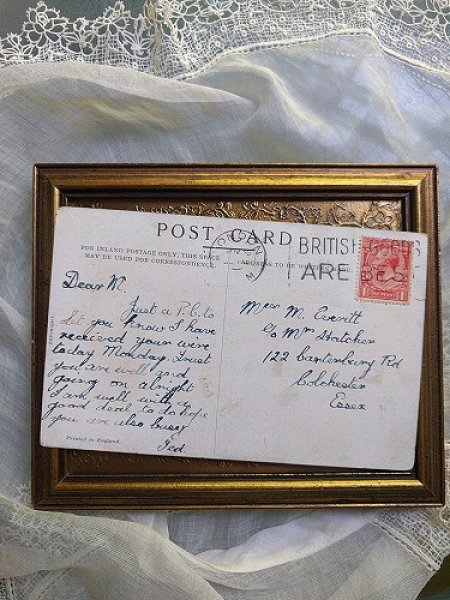 POST CARD
FOR INLAND POSTAGE ONLY, THIS SPACE
MAY BE USED FOR CORRESPONDENCE.
LONDON
BRITISH GOODS
ARE BEST
Dear M.
Just a P.C. to
let you know I have
received yours we're
today Monday. Trust
you are well and
going on alright
I am well with a
good deal to do hope
you are also busy
Ted.
Printed in England.
Miss M. Everitt
c/o Mrs Hatcher
122 Canterbury Rd
Colchester
Essex